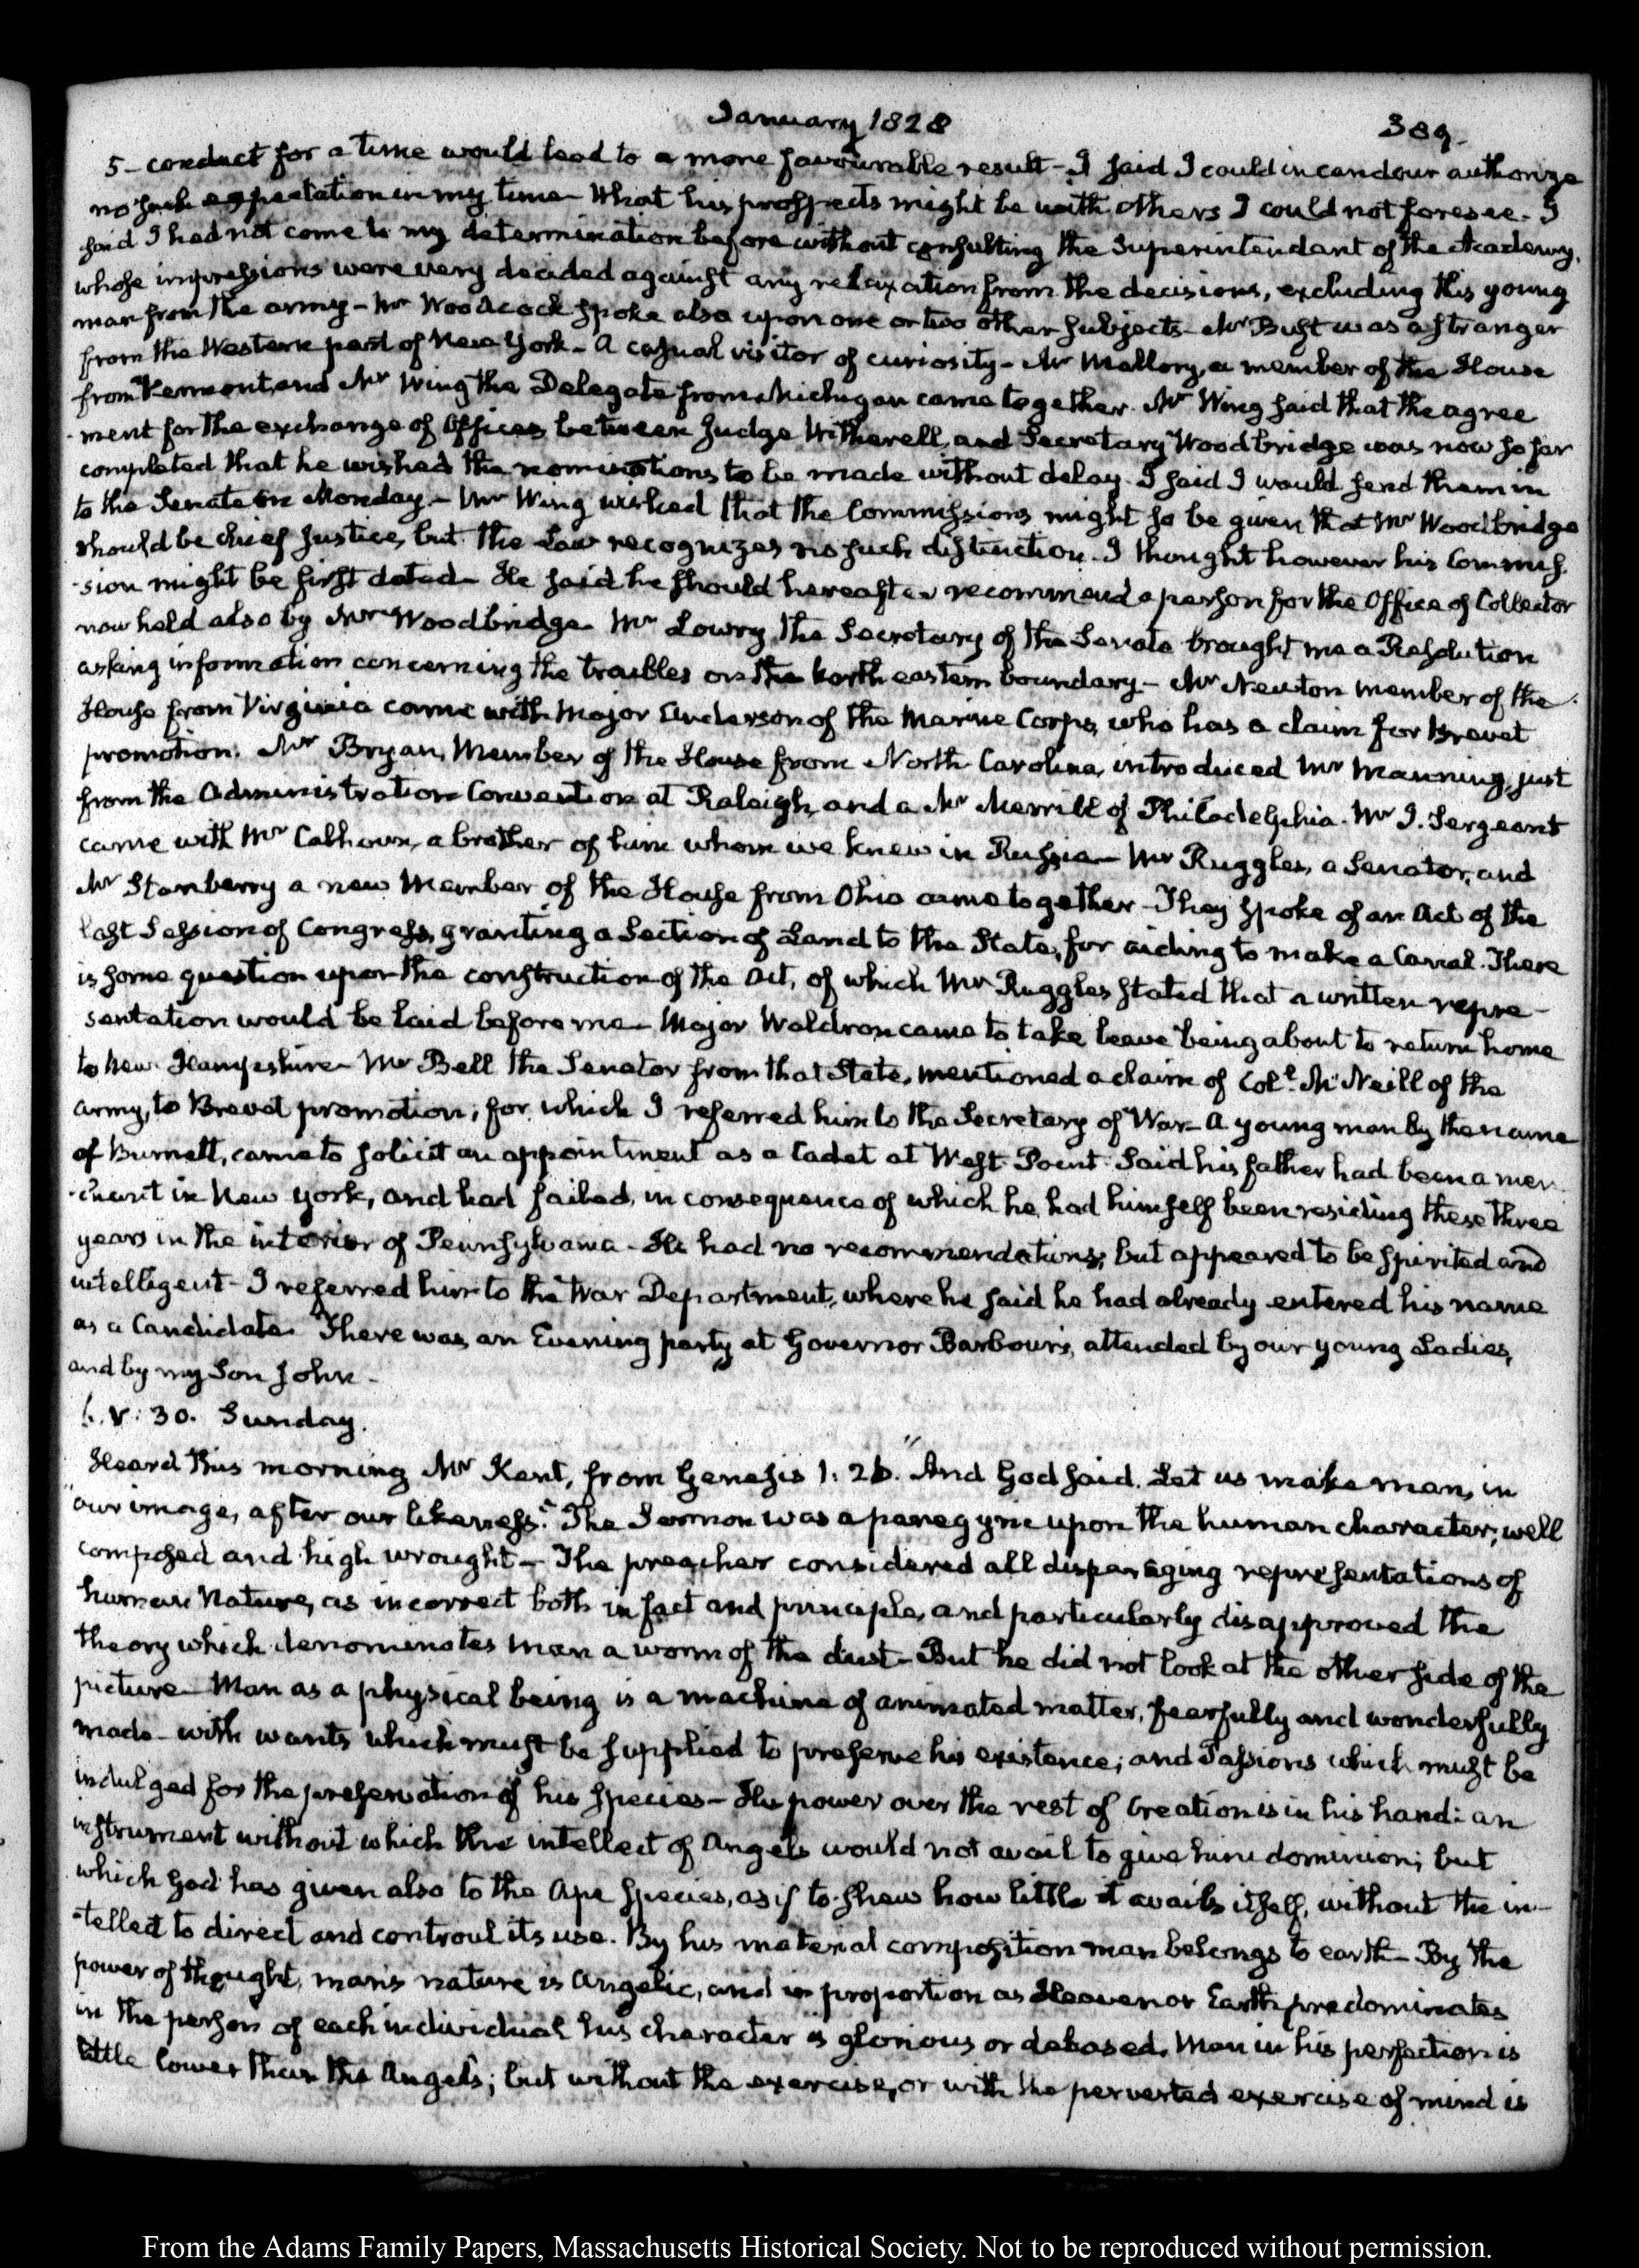 January 1828
389.
5 - conduct for a time would lead to a more favourable result - I said I could in candour authorize
no such expectation in my time - What his prospects might be with others I could not foresee. I
said I had not come to my determination before without consulting the Superintendant of the Academy,
whose impressions were very decided against any relaxation from the decisions, excluding this young
man from the army - Mr Woodcock spoke also upon one or two other subjects - Mr Bust was a stranger
from the Western part of New York - A casual visitor of curiosity - Mr Mallory, a member of the House
from Vermont, and Mr Wing the Delegate from Michigan came together. Mr Wing said that the agree
-ment for the exchange of Offices between Judge Witherell, and Secretary Woodbridge was now so far
completed that he wished the nominations to be made without delay. I said I would send them in
to the Senate on Monday. - Mr Wing wished that the Commissions might so be given that Mr Woodbridge
should be chief Justice, but the Law recognizes no such distinction. I thought however his Commis-
-sion might be first dated - He said he should hereafter recommend a person for the Office of Collector
now held also by Mr Woodbridge - Mr Lowry the Secretary of the Senate brought me a Resolution
asking information concerning the troubles on the North eastern boundary. - Mr Newton member of the
House from Virginia came with Major Anderson of the Marine Corps, who has a claim for Brevet
promotion. Mr Bryan, Member of the House from North Carolina, introduced Mr Manning, just
from the Administration Convention at Raleigh, and a Mr Merrill of Philadelphia. Mr J. Sergeant
came with Mr Calhoun, a brother of him whom we knew in Russia - Mr Ruggles, a Senator, and
Mr Stanberry a new Member of the House from Ohio came together - They spoke of an Act of the
last Session of Congress, granting a Section of Land to the State, for aiding to make a Canal. There
is some question upon the construction of the Act, of which Mr Ruggles stated that a written repre-
sentation would be laid before me - Major Waldron came to take leave being about to return home
to New Hampshire - Mr Bell the Senator from that State, mentioned a claim of Coll. McNeill of the
army, to Brevet promotion; for which I referred him to the Secretary of War - A young man by the name
of Burnett, came to solicit an appointment as a Cadet at West-Point. Said his father had been a mer
-chant in New York, and had failed, in consequence of which he had himself been residing these three
years in the interior of Pennsylvania - He had no recommendations; but appeared to be spirited and
intelligent - I referred him to the War Department, where he said he had already entered his name
as a Candidate. There was an Evening party at Governor Barbour's, attended by our young Ladies,
and by my Son John -
6. V: 30. Sunday.
Heard this morning Mr Kent, from Genesis 1: 26. "And God said. Let us make man, in
"our image, after our likeness". The Sermon was a panegyric upon the human character; well
composed and high wrought - The preacher considered all disparaging representations of
human Nature, as incorrect both in fact and principle, and particularly disapproved the
theory which denominates man a worm of the dust - But he did not look at the other side of the
picture - Man as a physical being is a machine of animated matter, fearfully and wonderfully
made - with wants which must be supplied to preserve his existence; and Passions which must be
indulged for the preservation of his species - His power over the rest of Creation is in his hand: an
instrument without which the intellect of Angels would not avail to give him dominion; but
which God has given also to the Ape Species, as if to shew how little it avails itself, without the in-
-tellect to direct and controul its use. By his material composition man belongs to earth - By the
power of thought, man's nature is Angelic, and in proportion as Heaven or Earth predominates
in the person of each individual his character is glorious or debased. Man in his perfection is
little lower than the Angels; but without the exercise, or with the perverted exercise of mind is
From the Adams Family Papers, Massachusetts Historical Society. Not to be reproduced without permission.